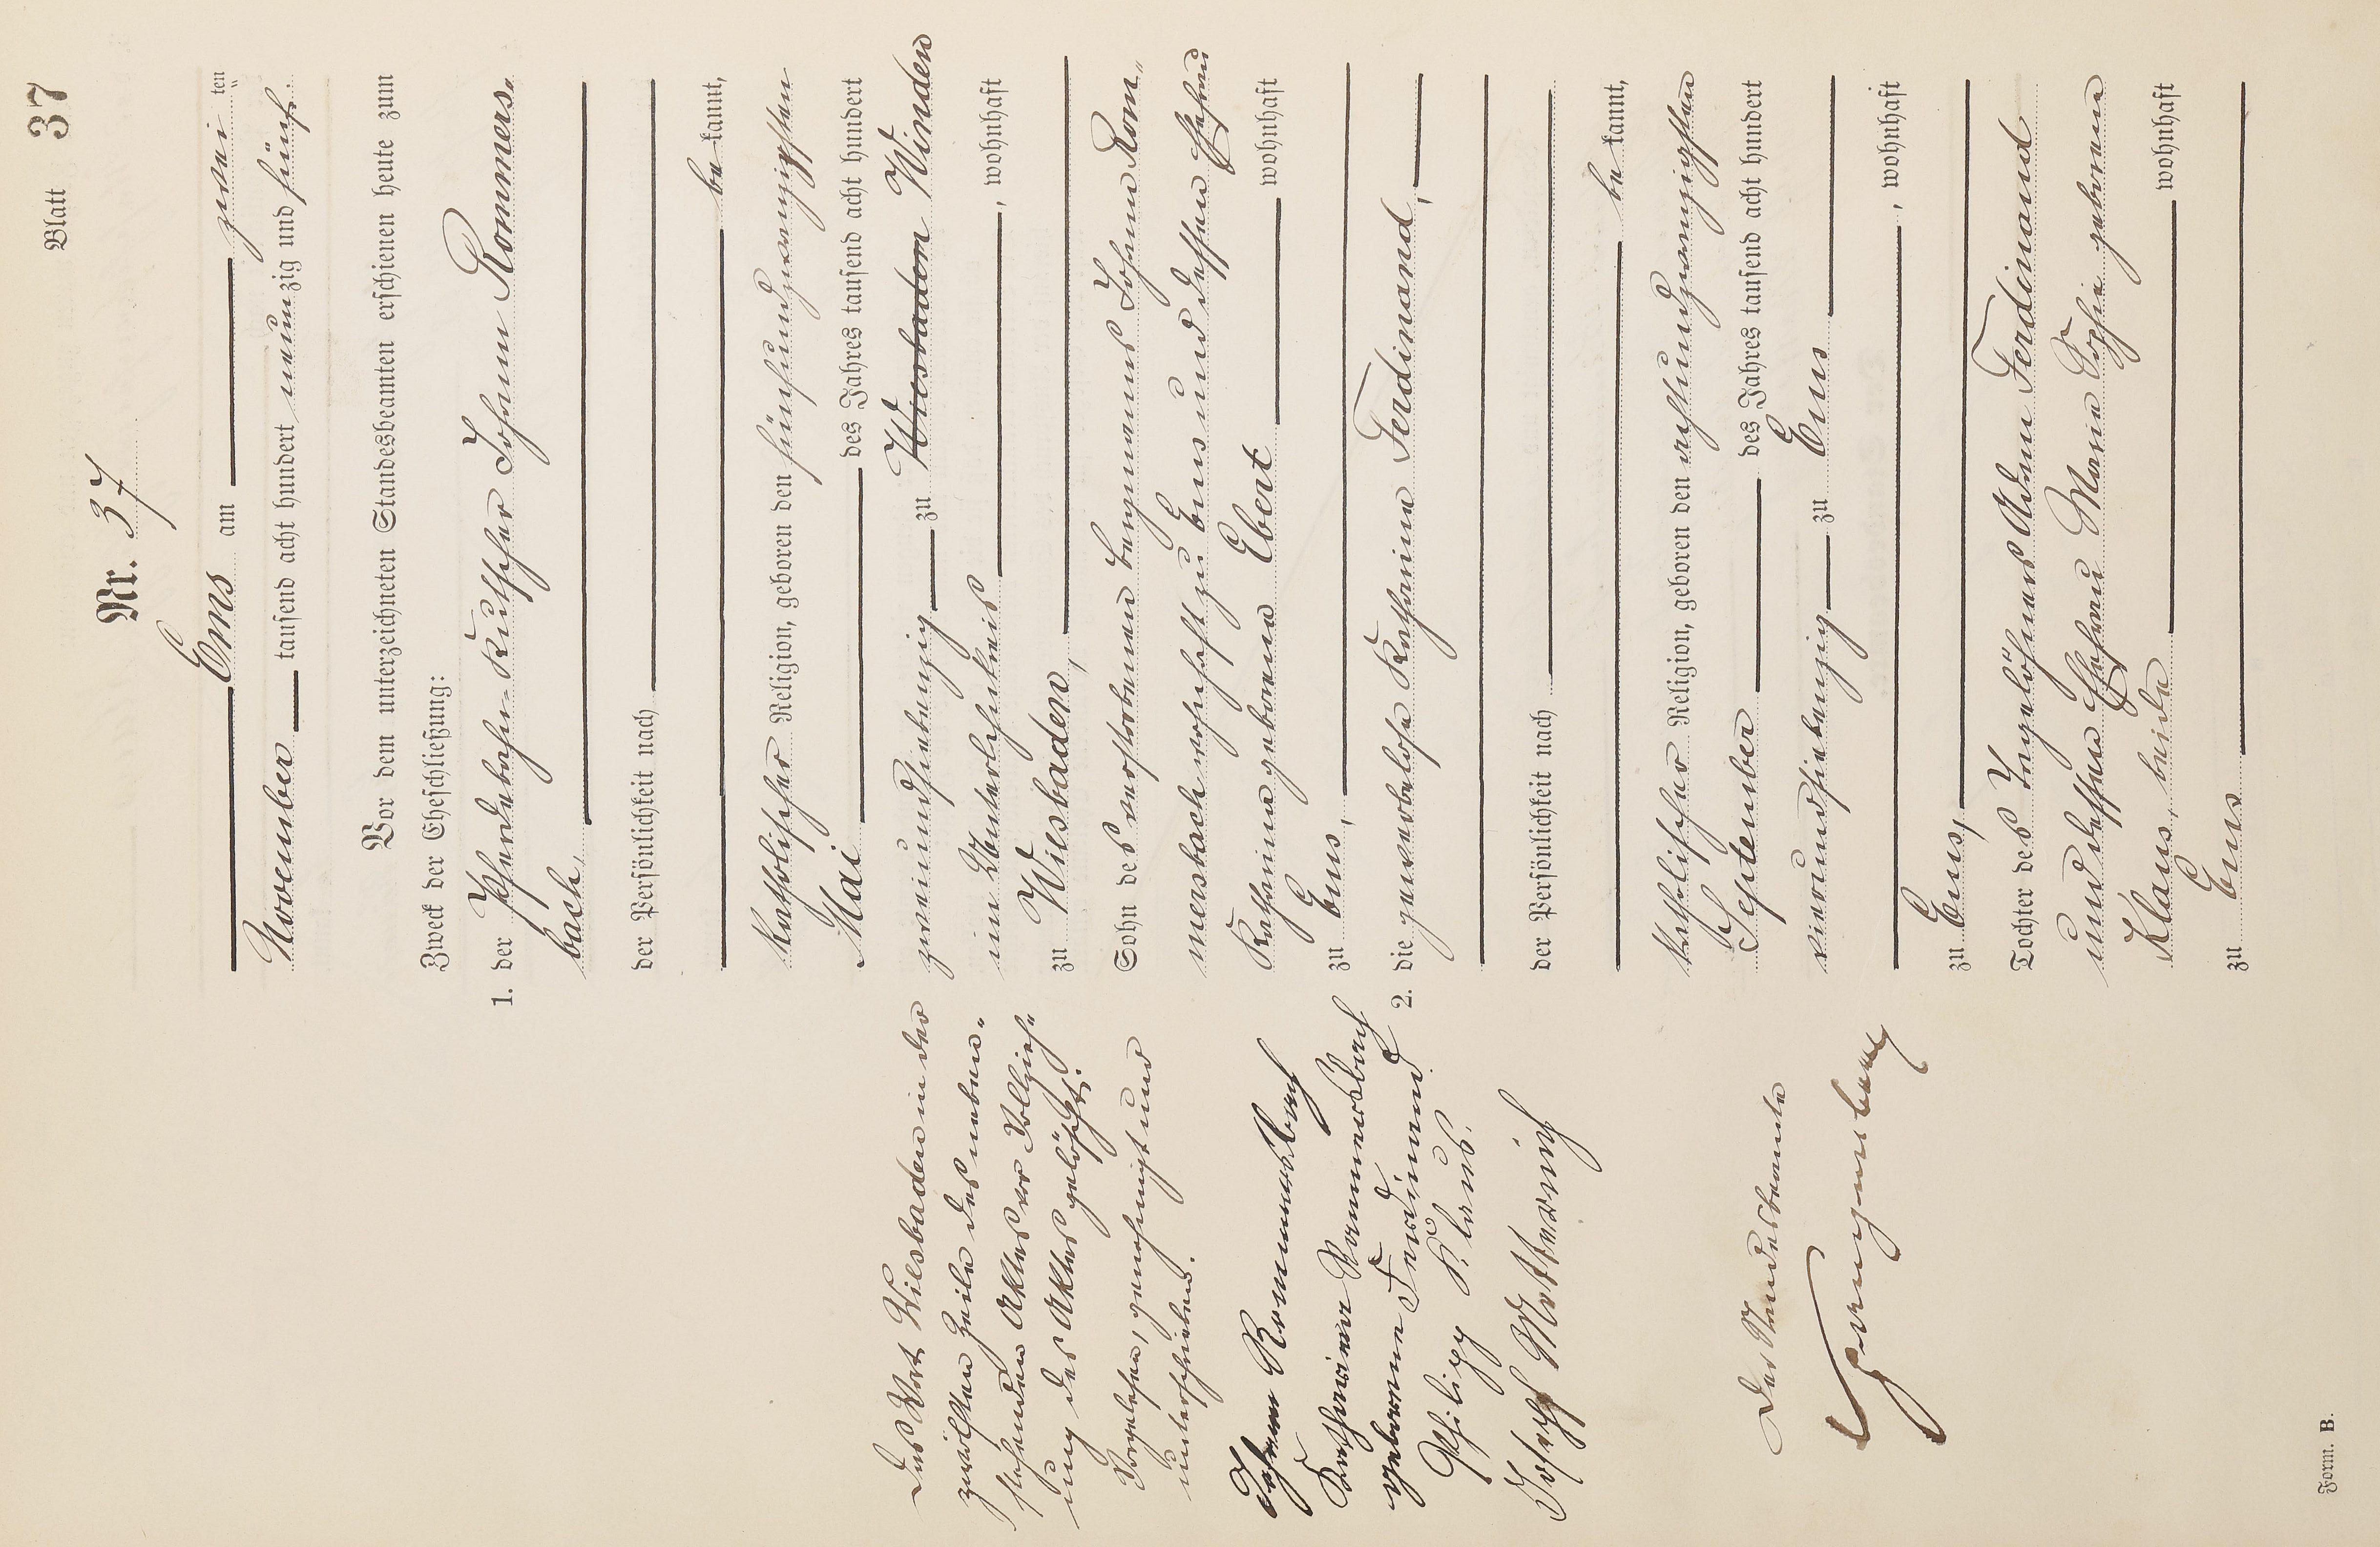 Blatt 37
Nr. 37
Ems am zwei ten
November tausend acht hundert neunzig und fünf.
Vor dem unterzeichneten Standesbeamten erschienen heute zum
Zweck der Eheschließung:
1. der Pferdebahn-Kutscher Johann Rommers-
bach,
der Persönlichkeit nach
be kannt,
katholischer Religion, geboren den fünfundzwanzigsten
Mai des Jahres tausend acht hundert
zweiundsiebenzig zu Wiesbaden Winden
im Unterlahnkreis, wohnhaft
zu Wiesbaden,
Sohn des verstorbenen Bergmanns Johann Rom-
mersbach wohnhaft zu Ems und dessen Ehefrau
Katharina geborene Ebert wohnhaft
zu Ems,
2. die gewerbelose Katharina Ferdinand,
der Persönlichkeit nach
be kannt,
katholischer Religion, geboren den achtundzwanzigsten
September des Jahres tausend acht hundert
vierundsiebenzig zu Ems
, wohnhaft
zu Ems,
Tochter des Tagelöhners Adam Ferdinand
und dessen Ehefrau Maria Sophia geborene
Klaus, beide wohnhaft
zu Ems
Das Wort Wiesbaden in der
zwölften Zeile des neben-
stehenden Aktes vor Vollzieh-
ung des Aktes gelöscht.
Vorgelesen, genehmigt und
unterschrieben.
Johann Rommersbach
Katharina Rommersbach
geborene Ferdinand
Philipp Klaus.
Joseph Metternich
Der Standesbeamte
Form. B.